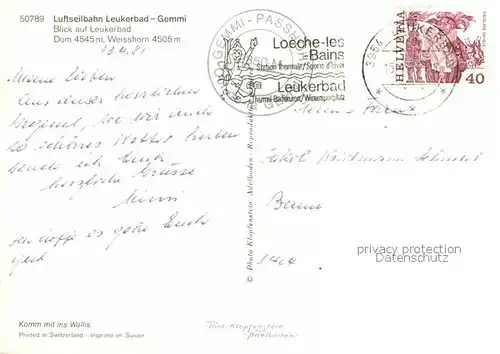 50789 Luftseilbahn Leukerbad – Gemmi
Blick auf Leukerbad
Dom 4545 m, Weisshorn 4505 m
GEMMI-PASSHÖHE
Loèche-les
Bains
Station thermale/Sports d'hiver
Leukerbad
Thermal-Badekurort/Wintersportplatz
3954 LEUKERBAD
HELVETIA
40
Meine Lieben
Aus dieser herrlichen
Gegend, wo wir auch
so schönes Wetter haben
sende ich Euch
herzliche Grüsse
Mimi
ich hoffe es gehe Euch
gut
Bern
© Photo Klopfenstein Adelboden - Reproduktion
Komm mit ins Wallis.
Printed in Switzerland - Imprimé en Suisse
privacy protection
my-siscard.com